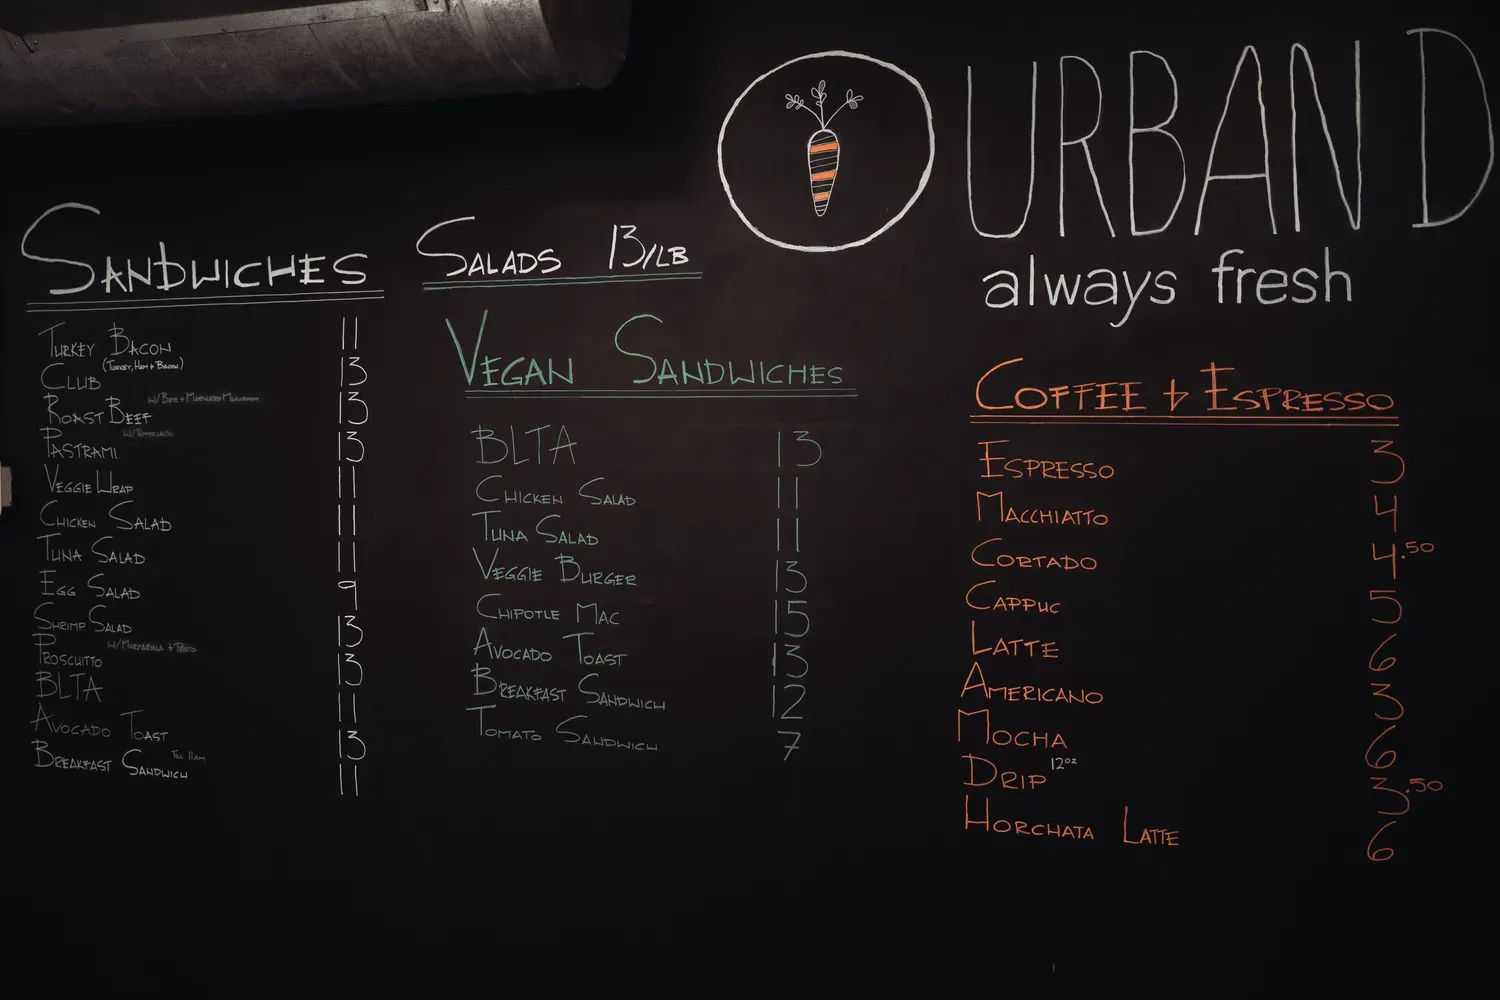 URBAN D
always fresh
SANDWICHES
TURKEY BACON 11
CLUB (TURKEY, HAM + BACON) 13
ROAST BEEF 13
PASTRAMI W/PEPPERJACK 13
VEGGIE WRAP 11
CHICKEN SALAD 11
TUNA SALAD 11
EGG SALAD 9
SHRIMP SALAD 13
PROSCUITTO W/MOZZARELLA + PESTO 13
BLTA 11
AVOCADO TOAST 13
BREAKFAST SANDWICH TILL 11AM 11
SALADS 13/LB
VEGAN SANDWICHES
BLTA 13
CHICKEN SALAD 11
TUNA SALAD 11
VEGGIE BURGER 13
CHIPOTLE MAC 15
AVOCADO TOAST 13
BREAKFAST SANDWICH 12
TOMATO SANDWICH 7
COFFEE + ESPRESSO
ESPRESSO 3
MACCHIATTO 4
CORTADO 4.50
CAPPUC 5
LATTE 6
AMERICANO 3
MOCHA 6
DRIP 12oz 3.50
HORCHATA LATTE 6